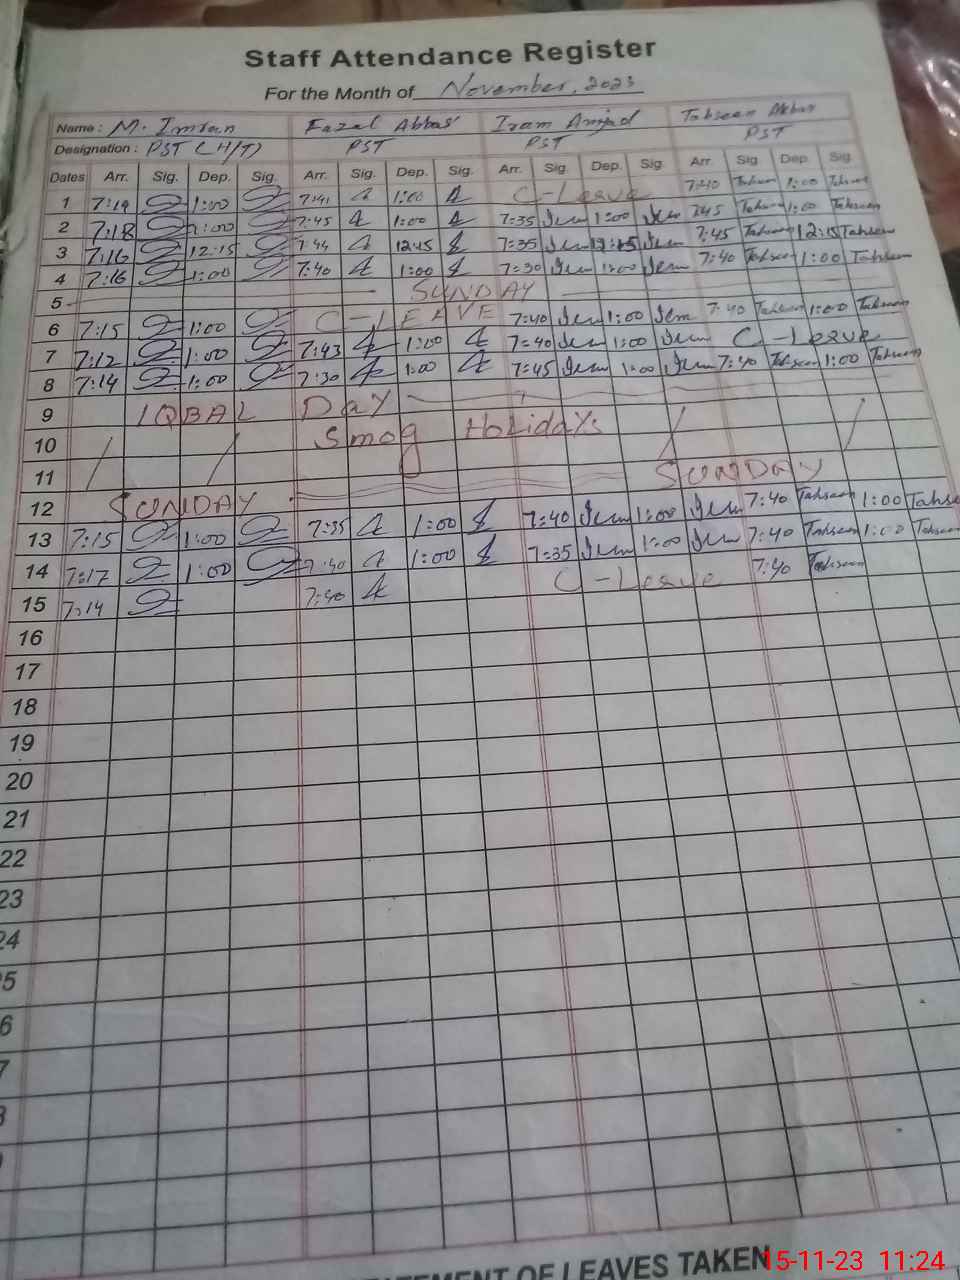 Staff Attendance Register
For the Month of November, 2023
Name : M. Imran Fazal Abbas Iram Amjad Tahseen Akbar
Designation : PST (H/T) PST PST PST
Dates Arr. Sig. Dep. Sig. Arr. Sig. Dep. Sig. Arr. Sig. Dep. Sig. Arr. Sig. Dep. Sig.
1 7:19 1:00 7:41 1:00 C-Leave 7:40 Tahseen 1:00 Tahseen
2 7:18 1:00 7:45 1:00 7:35 1:00 7:45 Tahseen 1:00 Tahseen
3 7:16 12:15 7:44 12:15 7:35 12:15 7:45 Tahseen 12:15 Tahseen
4 7:16 1:00 7:40 1:00 7:30 1:00 7:40 Tahseen 1:00 Tahseen
5 SUNDAY
6 7:15 1:00 C-LEAVE 7:40 1:00 7:40 Tahseen 1:00 Tahseen
7 7:12 1:00 7:43 1:00 7:40 1:00 C-Leave
8 7:14 1:00 7:30 1:00 7:45 1:00 7:40 Tahseen 1:00 Tahseen
9 IQBAL DAY
10 Smog Holidays
11
12 SUNDAY SUNDAY
13 7:15 1:00 7:35 1:00 7:40 1:00 7:40 Tahseen 1:00 Tahse
14 7:17 1:00 7:40 1:00 7:35 1:00 7:40 Tahseen 1:00 Tahseen
15 7:14 7:40 C-Leave 7:40 Tahseen
16
17
18
19
20
21
22
23
24
5
6
7
8
STATEMENT OF LEAVES TAKEN
15-11-23 11:24